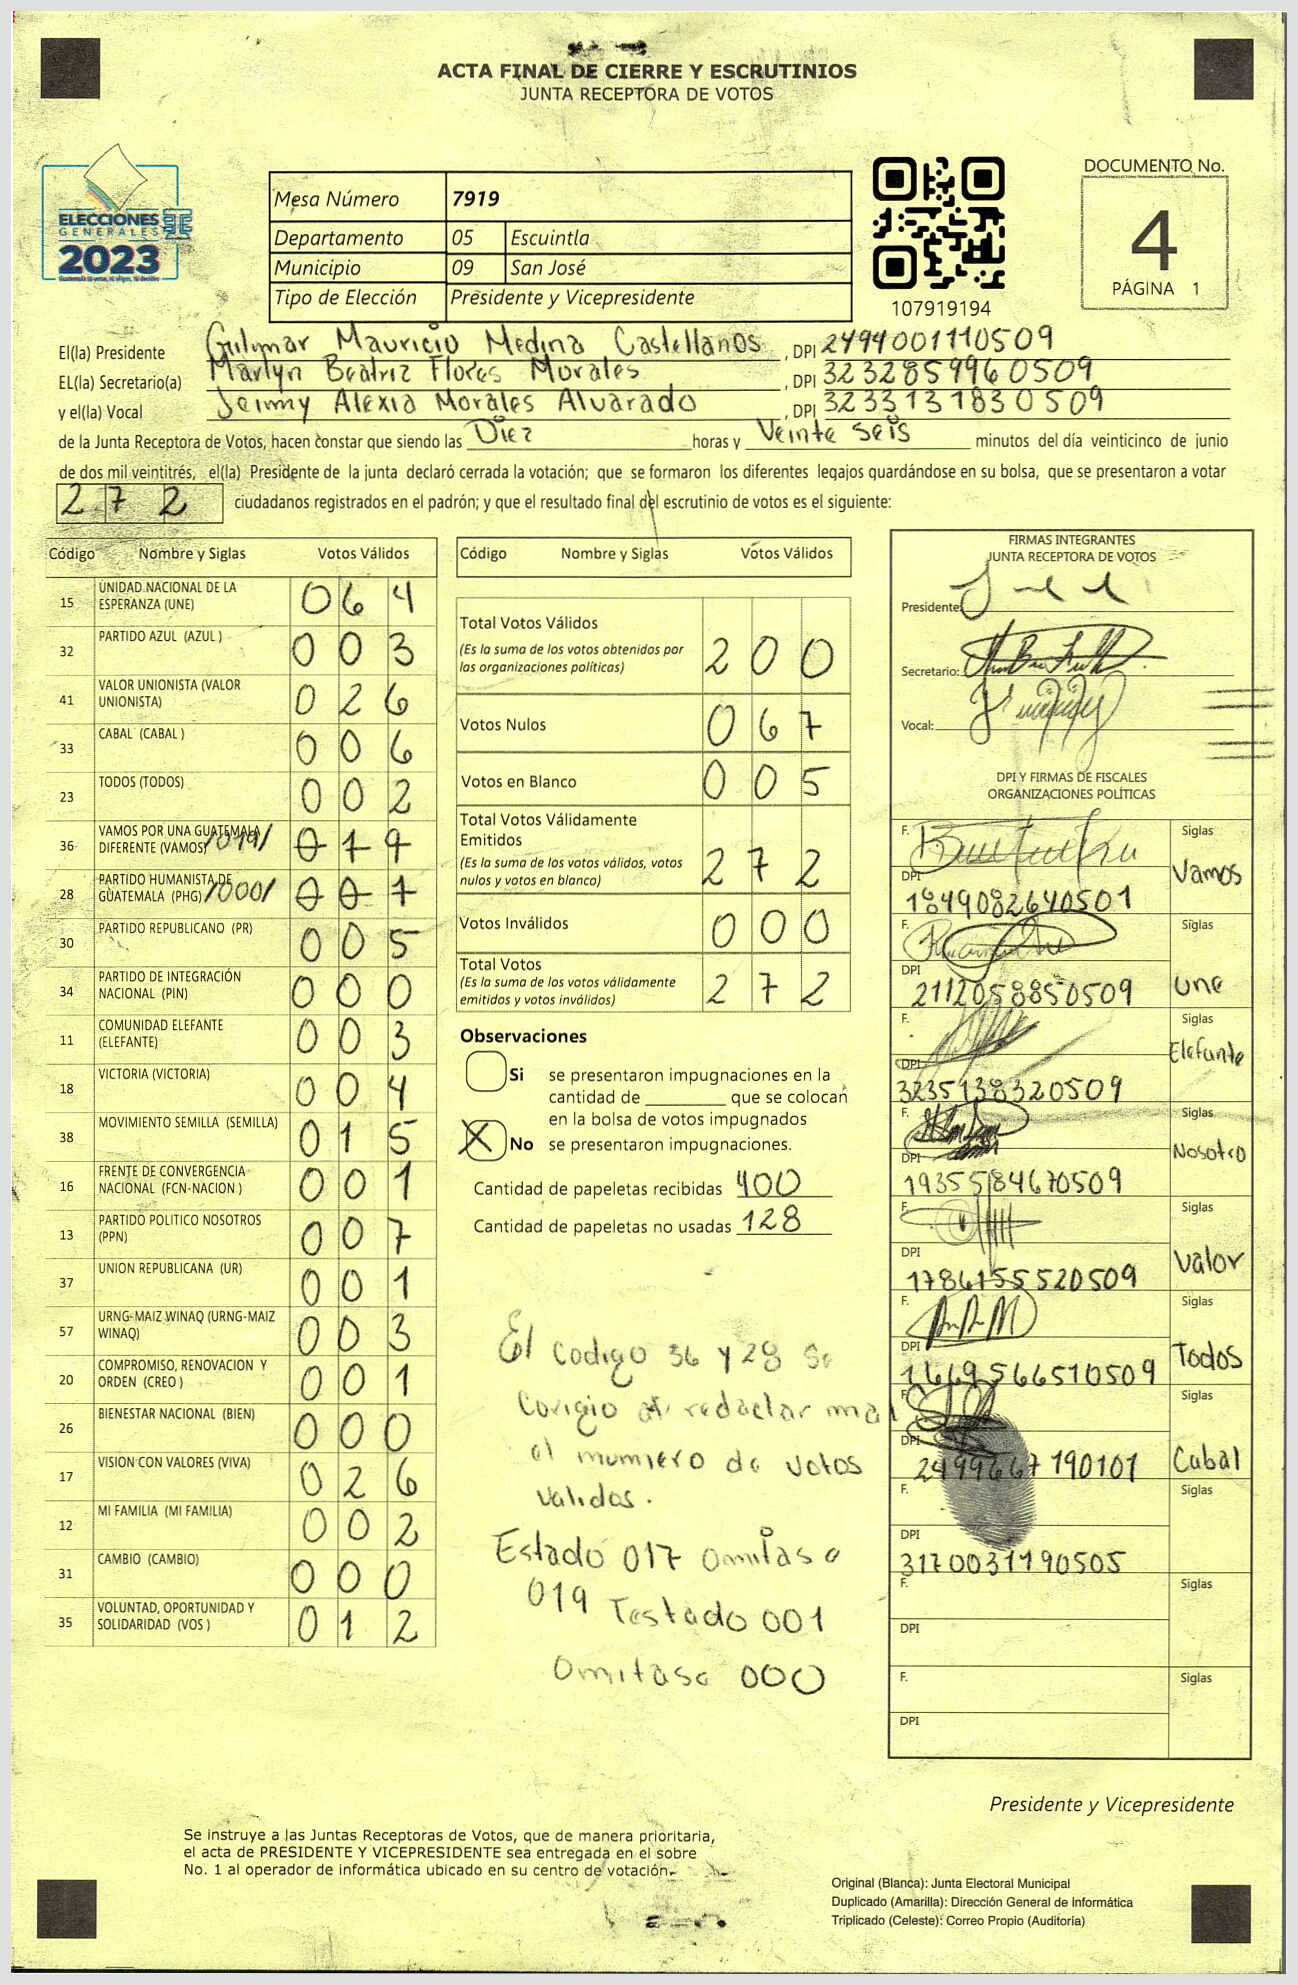 ACTA FINAL DE CIERRE Y ESCRUTINIOS
JUNTA RECEPTORA DE VOTOS
ELECCIONES
GENERALES
2023
Mesa Número 7919
Departamento 05 Escuintla
Municipio 09 San José
Tipo de Elección Presidente y Vicepresidente
107919194
DOCUMENTO No.
4
PÁGINA 1
El(la) Presidente Gulymar Mauricio Medina Castellanos, DPI 2494001110509
EL(la) Secretario(a) Marlyn Beatriz Flores Morales, DPI 3232859960509
y el(la) Vocal Jeimmy Alexia Morales Alvarado, DPI 3233131830509
de la Junta Receptora de Votos, hacen constar que siendo las Diez horas y Veinte seis minutos del día veinticinco de junio
de dos mil veintitrés, el(la) Presidente de la junta declaró cerrada la votación; que se formaron los diferentes legajos guardándose en su bolsa, que se presentaron a votar
272 ciudadanos registrados en el padrón; y que el resultado final del escrutinio de votos es el siguiente:
Código Nombre y Siglas Votos Válidos
15 UNIDAD NACIONAL DE LA ESPERANZA (UNE) 064
32 PARTIDO AZUL (AZUL ) 003
41 VALOR UNIONISTA (VALOR UNIONISTA) 026
33 CABAL (CABAL ) 006
23 TODOS (TODOS) 002
36 VAMOS POR UNA GUATEMALA DIFERENTE (VAMOS) /019/
28 PARTIDO HUMANISTA DE GUATEMALA (PHG) /000/ 001
30 PARTIDO REPUBLICANO (PR) 005
34 PARTIDO DE INTEGRACIÓN NACIONAL (PIN) 000
11 COMUNIDAD ELEFANTE (ELEFANTE) 003
18 VICTORIA (VICTORIA) 004
38 MOVIMIENTO SEMILLA (SEMILLA) 015
16 FRENTE DE CONVERGENCIA NACIONAL (FCN-NACION ) 001
13 PARTIDO POLITICO NOSOTROS (PPN) 007
37 UNION REPUBLICANA (UR) 001
57 URNG-MAIZ WINAQ (URNG-MAIZ WINAQ) 003
20 COMPROMISO, RENOVACION Y ORDEN (CREO ) 001
26 BIENESTAR NACIONAL (BIEN) 000
17 VISION CON VALORES (VIVA) 026
12 MI FAMILIA (MI FAMILIA) 002
31 CAMBIO (CAMBIO) 000
35 VOLUNTAD, OPORTUNIDAD Y SOLIDARIDAD (VOS ) 012
Código Nombre y Siglas Votos Válidos
Total Votos Válidos 200
(Es la suma de los votos obtenidos por
las organizaciones políticas)
Votos Nulos 067
Votos en Blanco 005
Total Votos Válidamente
Emitidos
(Es la suma de los votos válidos, votos
nulos y votos en blanco) 272
Votos Inválidos 000
Total Votos 272
(Es la suma de los votos válidamente
emitidos y votos inválidos)
Observaciones
Si se presentaron impugnaciones en la
cantidad de ________ que se colocan
en la bolsa de votos impugnados
X No se presentaron impugnaciones.
Cantidad de papeletas recibidas 400
Cantidad de papeletas no usadas 128
El Codigo 36 y 28 Se
Corigio al redactar mal
el numero de votos
validos.
Estado 017 Omitase
019 Testado 001
Omitase 000
FIRMAS INTEGRANTES
JUNTA RECEPTORA DE VOTOS
Presidente:
Secretario:
Vocal:
DPI Y FIRMAS DE FISCALES
ORGANIZACIONES POLÍTICAS
F. Siglas
DPI 1849082640501 Vamos
F. Siglas
DPI 2112058850509 une
F. Siglas
DPI 3235138320509 Elefante
F. Siglas
DPI 1935584670509 Nosotro
F. Siglas
DPI 1786155520509 Valor
F. Siglas
DPI 1669566510509 Todos
F. Siglas
DPI 2499667190101 Cabal
F. Siglas
DPI 3170031190505
F. Siglas
DPI
F. Siglas
DPI
Presidente y Vicepresidente
Se instruye a las Juntas Receptoras de Votos, que de manera prioritaria,
el acta de PRESIDENTE Y VICEPRESIDENTE sea entregada en el sobre
No. 1 al operador de informática ubicado en su centro de votación.
Original (Blanca): Junta Electoral Municipal
Duplicado (Amarilla): Dirección General de Informática
Triplicado (Celeste): Correo Propio (Auditoría)